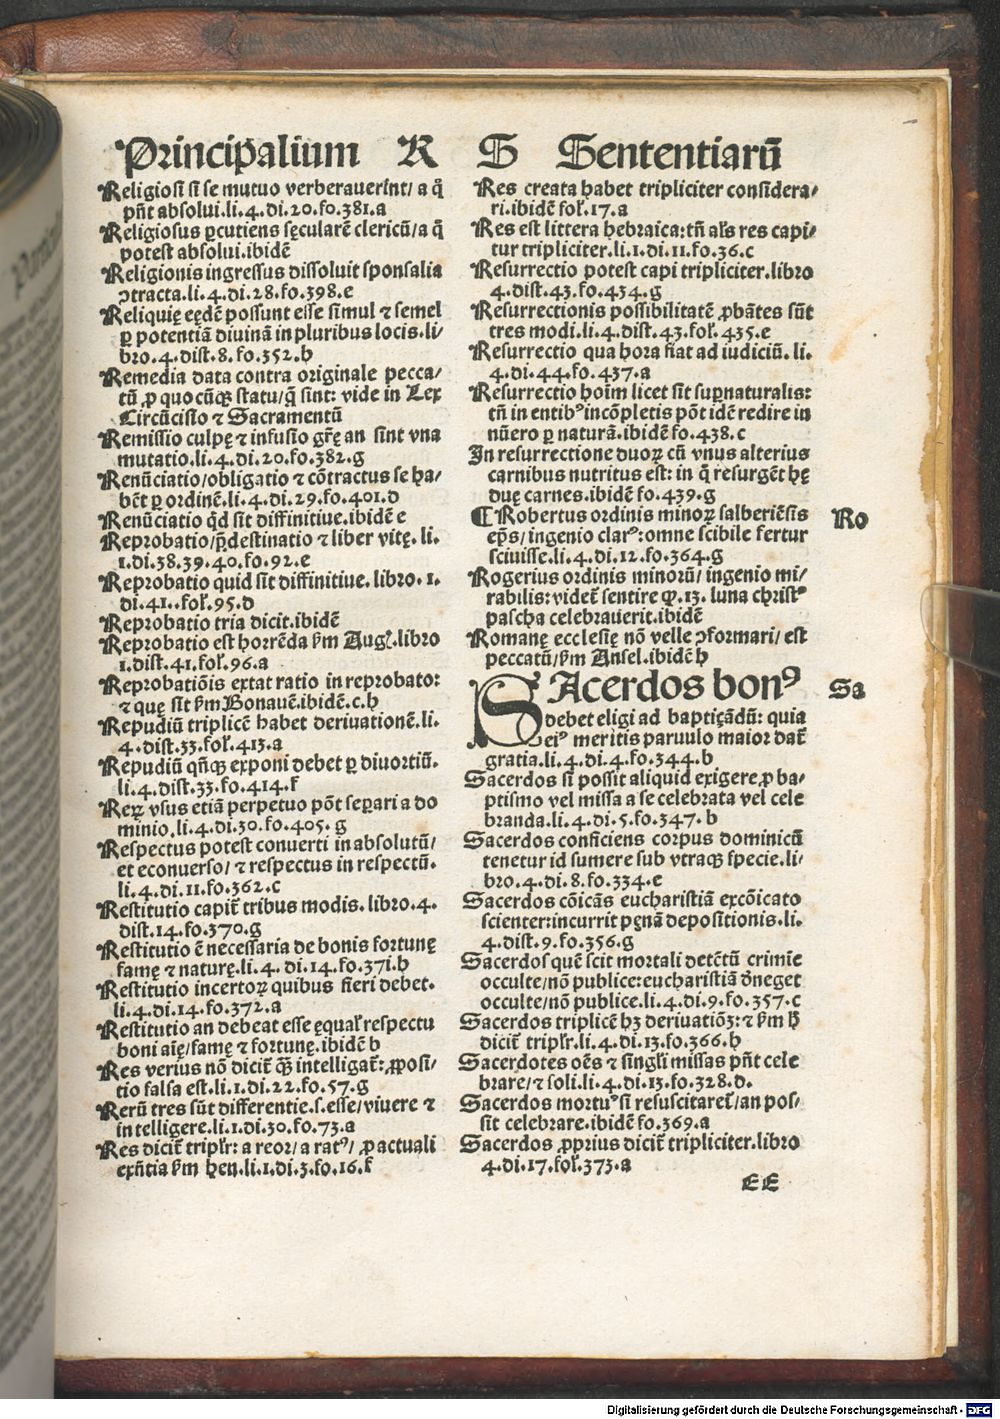 Principalium R S Sententiarū
Religiosi si se mutuo verberauerint/ a q̄
pñt absolui.li.4.di.20.fo.381.a
Religiosus ꝑcutiens sęcularē clericū/a q̄
potest absolui.ibidē
Religionis ingressus dissoluit sponsalia
ꝯtracta.li.4.di.28.fo.398.e
Reliquię eędē possunt esse simul ⁊ semel
ꝑ potentiā diuinā in pluribus locis.li/
bro.4.dist.8.fo.352.h
Remedia data contra originale pecca/
tū ꝓ quocūqꝫ statu/q̄ sint: vide in Lex
Circūcisio ⁊ Sacramentū
Remissio culpę ⁊ infusio gr̄ę an sint vna
mutatio.li.4.di.20.fo.382.g
Renūciatio/obligatio ⁊ cōtractus se ha/
bēt ꝑ ordinē.li.4.di.29.fo.401.d
Renūciatio qd̄ sit diffinitiue.ibidē e
Reprobatio/p̄destinatio ⁊ liber vitę. li.
1.di.38.39.40.fo.92.e
Reprobatio quid sit diffinitiue. libro. 1.
di.41..fol̄.95.d
Reprobatio tria dicit.ibidē
Reprobatio est horrēda ẜm Aug.libro
1.dist.41.fol̄.96.a
Reprobatiōis extat ratio in reprobato:
⁊ quę sit ẜm Bonauē.ibidē.c.h
Repudiū triplicē habet deriuationē.li.
4.dist.33.fol̄.413.a
Repudiū qn̄qꝫ exponi debet ꝑ diuortiū.
li.4.dist.33.fo.414.f
Reꝝ vsus etiā perpetuo pōt seꝑari a do
minio.li.4.di.30.fo.405. g
Respectus potest conuerti in absolutū/
et econuerso/ ⁊ respectus in respectū.
li.4.di.11.fo.362.c
Restitutio capit̄ tribus modis. libro.4.
dist.14.fo.370.g
Restitutio ē necessaria de bonis fortunę
famę ⁊ naturę.li.4. di.14.fo.371.h
Restitutio incertoꝝ quibus fieri debet.
li.4.di.14.fo.372.a
Restitutio an debeat esse ęqual̄ respectu
boni aīę/famę ⁊ fortunę.ibidē b
Res verius nō dicit̄ qꝫ intelligat̄: ꝓposi/
tio falsa est.li.1.di.22.fo.57.g
Rerū tres sūt differentie.s.esse/viuere ⁊
intelligere.li.1.di.30.fo.73.a
Res dicit̄ triplr̄: a reor/ a ratꝰ/ ꝓ actuali
exn̄tia ẜm hen.li.1.di.3.fo.16.f
Res creata habet tripliciter considera/
ri.ibidē fol̄.17.a
Res est littera hebraica: tn̄ al̄s res capi/
tur tripliciter.li.1.di.11.fo.36.c
Resurrectio potest capi tripliciter.libro
4.dist.43.fo.434.g
Resurrectionis possibilitatē ꝓbātes sūt
tres modi.li.4.dist.43.fol̄. 435.e
Resurrectio qua hora fiat ad iudiciū. li.
4.di.44.fo.437.a
Resurrectio hoīm licet sit supnaturalis:
tn̄ in entibꝰ incōpletis pōt idē redire in
nūero ꝑ naturā.ibidē fo.438.c
In resurrectione duoꝝ cū vnus alterius
carnibus nutritus est: in q̄ resurgēt hę
duę carnes.ibidē fo.439.g
¶ Robertus ordinis minoꝝ salberiēsis
ep̄s/ ingenio clarꝰ: omne scibile fertur
sciuisse.li.4.di.12.fo.364.g
Ro
Rogerius ordinis minorū/ ingenio mi/
rabilis: videt̄ sentire ꝙ.13. luna christꝰ
pascha celebrauerit.ibidē
Romanę ecclesię nō velle ꝯformari/ est
peccatū/ẜm Ansel.ibidē h
SAcerdos bonꝰ
Sa
debet eligi ad baptiçādū: quia
eiꝰ meritis paruulo maior dat̄
gratia.li.4.di.4.fo.344.b
Sacerdos si possit aliquid exigere ꝓ ba/
ptismo vel missa a se celebrata vel cele
branda.li.4.di.5.fo.347. b
Sacerdos conficiens corpus dominicū
tenetur id sumere sub vtraqꝫ specie.li/
bro.4.di.8.fo.334.e
Sacerdos cōicās eucharistiā excōicato
scienter:incurrit pęnā depositionis.li.
4.dist.9.fo.356.g
Sacerdos quē scit mortali detētū crimīe
occulte/nō publice:eucharistiā d̄neget
occulte/nō publice.li.4.di.9.fo.357.c
Sacerdos triplicē hꝫ deriuatiōꝫ: ⁊ ẜm ħ
dicit̄ triplr̄.li.4.di.13.fo.366.h
Sacerdotes oēs ⁊ singl̄i missas pñt cele
brare/⁊ soli.li.4.di.13.fo.328.d.
Sacerdos mortuꝰ si resuscitaret̄/an pos/
sit celebrare.ibidē fo.369.a
Sacerdos ꝓprius dicit̄ tripliciter.libro
4.di.17.fol̄.373.a
EE
Digitalisierung gefördert durch die Deutsche Forschungsgemeinschaft - DFG